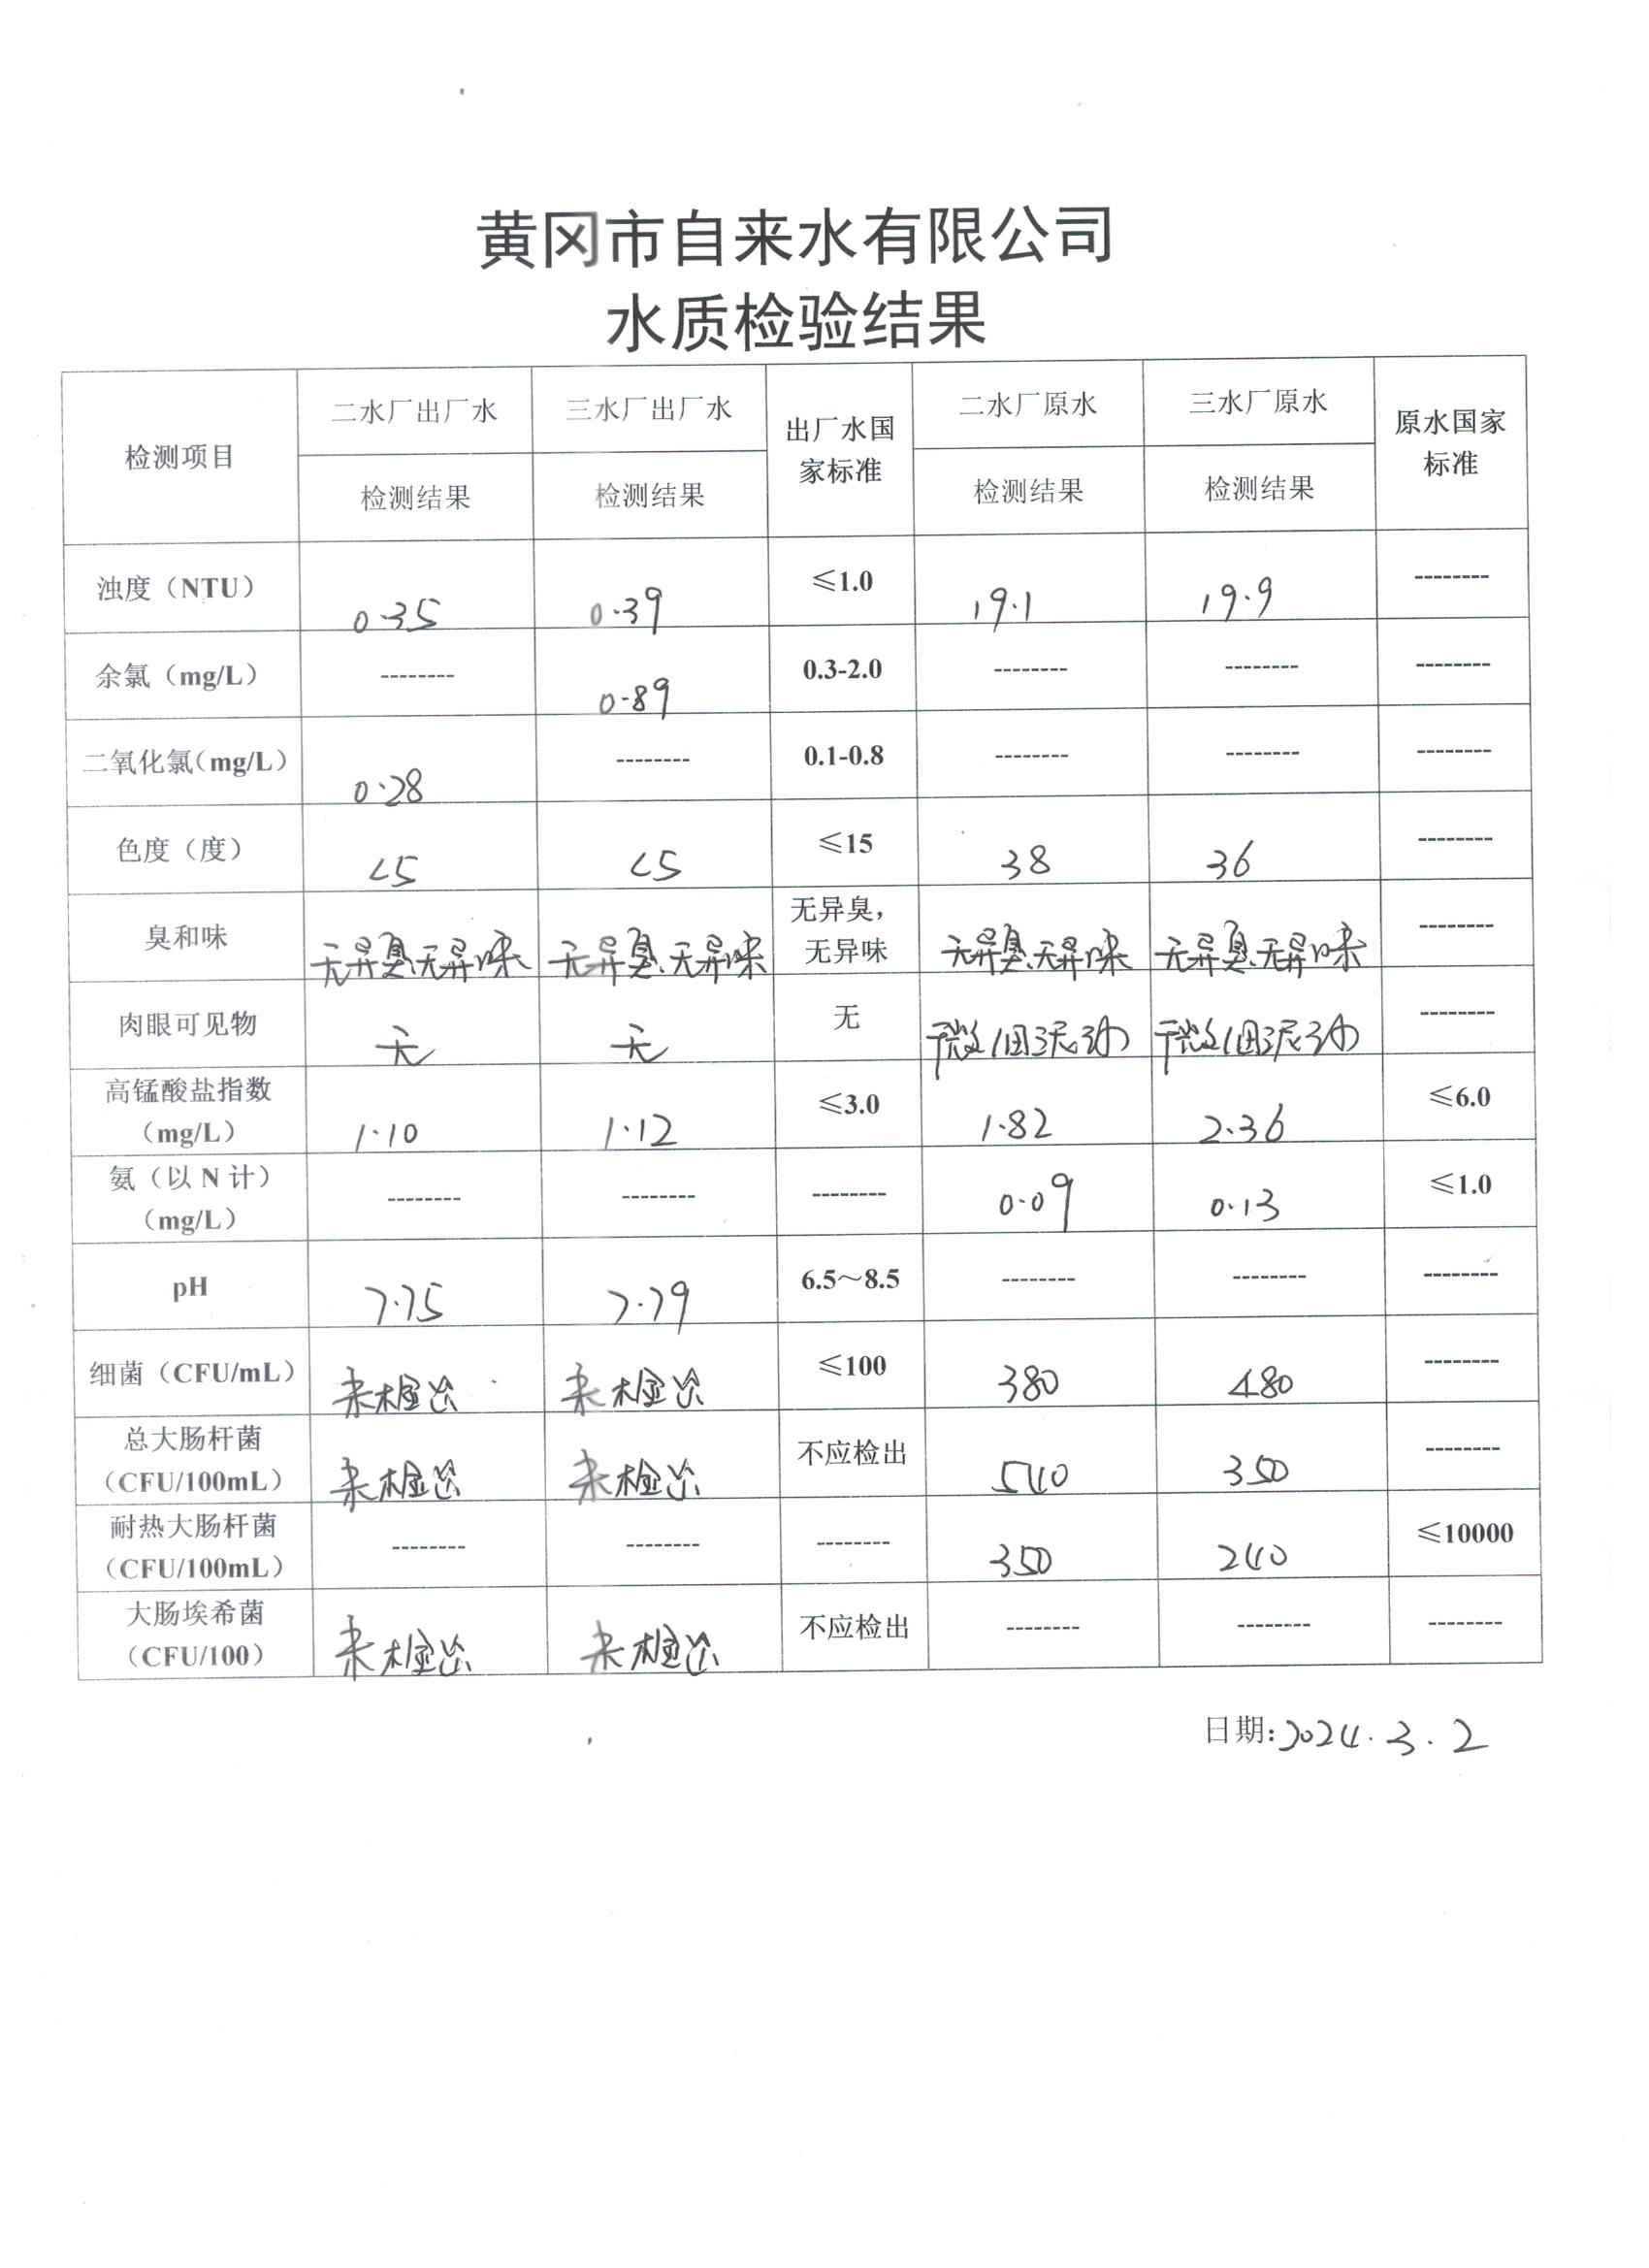 黄冈市自来水有限公司
水质检验结果
检测项目 二水厂出厂水 三水厂出厂水 出厂水国家标准 二水厂原水 三水厂原水 原水国家标准
检测结果 检测结果 检测结果 检测结果
浊度（NTU） 0.35 0.39 ≤1.0 19.1 19.9 --------
余氯（mg/L） -------- 0.89 0.3-2.0 -------- -------- --------
二氧化氯（mg/L） 0.28 -------- 0.1-0.8 -------- -------- --------
色度（度） <5 <5 ≤15 38 36 --------
臭和味 无异臭、无异味 无异臭、无异味 无异臭，无异味 无异臭、无异味 无异臭、无异味 --------
肉眼可见物 无 无 无 微细泥沙 微细泥沙 --------
高锰酸盐指数（mg/L） 1.10 1.12 ≤3.0 1.82 2.36 ≤6.0
氨（以 N 计）（mg/L） -------- -------- -------- 0.09 0.13 ≤1.0
pH 7.75 7.79 6.5～8.5 -------- -------- --------
细菌（CFU/mL） 未检出 未检出 ≤100 380 480 --------
总大肠杆菌（CFU/100mL） 未检出 未检出 不应检出 540 350 --------
耐热大肠杆菌（CFU/100mL） -------- -------- -------- 350 240 ≤10000
大肠埃希菌（CFU/100） 未检出 未检出 不应检出 -------- -------- --------
日期：2024.3.2